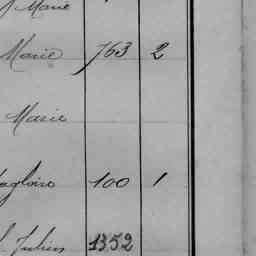 Marie
Marie 763 2
Marie
100 1
Julien 1352